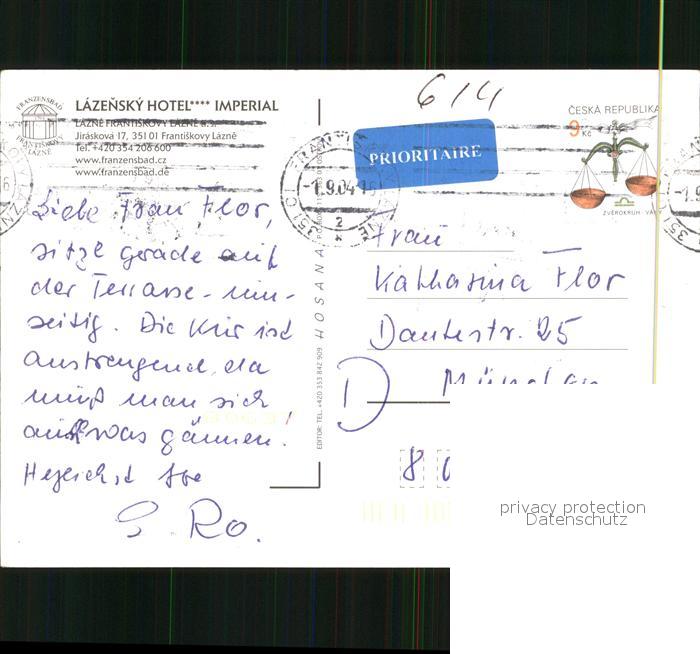 FRANZENSBAD
FRANTIŠKOVY LÁZNĚ
LÁZEŇSKÝ HOTEL**** IMPERIAL
LÁZNĚ FRANTIŠKOVY LÁZNĚ a.s.
Jiráskova 17, 351 01 Františkovy Lázně
Tel. +420 354 206 600
www.franzensbad.cz
www.franzensbad.de
614
PRIORITAIRE
ČESKÁ REPUBLIKA
9 Kč
ZVĚROKRUH - VÁHY
-1.9.04-16
2
Liebe Frau Flor,
sitze gerade auf
der Terrasse -
seitig. Die Kur ist
anstrengend, da
muß man sich
auch was gönnen!
Herzlichst Ihre
G. Ro.
HOSANA
EDITOR: TEL. +420 353 842 909
Frau
Katharina Flor
Dantestr. 25
D München
8
privacy protection
Datenschutz